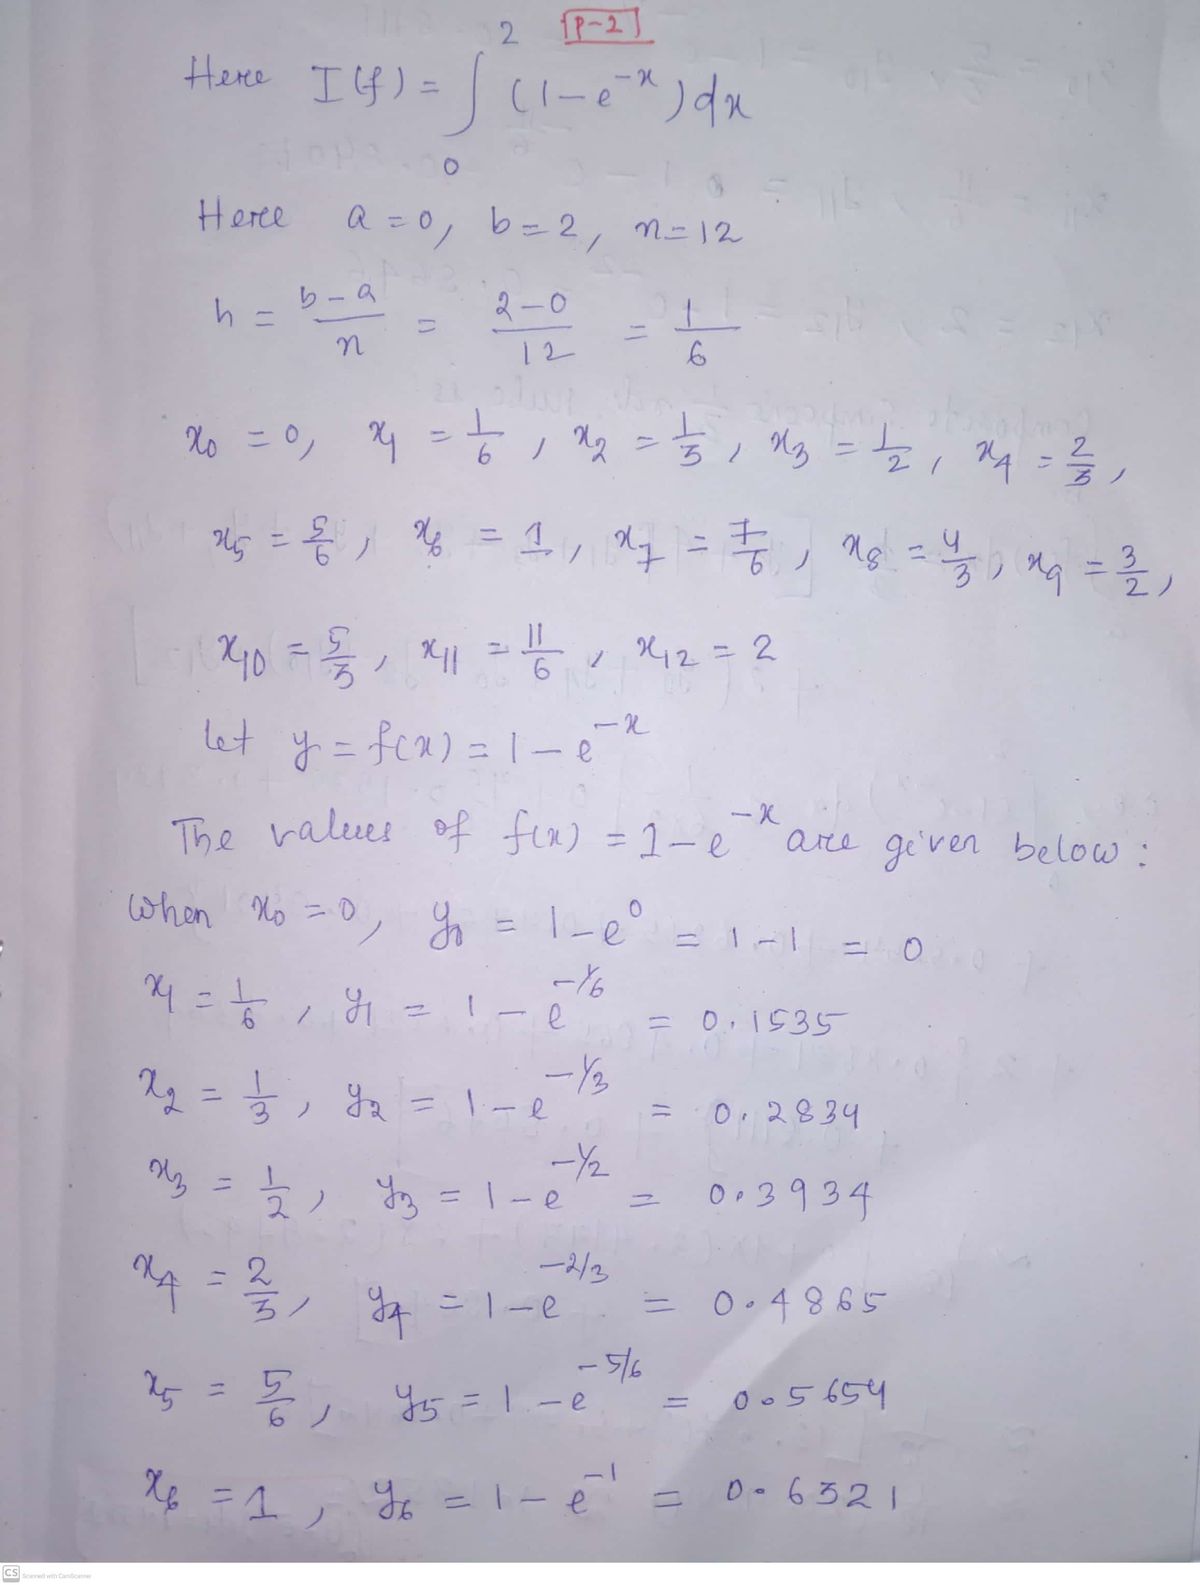 P-2
Here I(f) = ∫₀² (1-e^-x) dx
Here a=0, b=2, n=12
h = (b-a)/n = (2-0)/12 = 1/6
x₀ = 0, x₁ = 1/6, x₂ = 1/3, x₃ = 1/2, x₄ = 2/3,
x₅ = 5/6, x₆ = 1, x₇ = 7/6, x₈ = 4/3, x₉ = 3/2,
x₁₀ = 5/3, x₁₁ = 11/6, x₁₂ = 2
let y = f(x) = 1 - e^-x
The values of f(x) = 1-e^-x are given below:
When x₀ = 0, y₀ = 1-e^0 = 1-1 = 0
x₁ = 1/6, y₁ = 1 - e^-1/6 = 0.1535
x₂ = 1/3, y₂ = 1-e^-1/3 = 0.2834
x₃ = 1/2, y₃ = 1-e^-1/2 = 0.3934
x₄ = 2/3, y₄ = 1-e^-2/3 = 0.4865
x₅ = 5/6, y₅ = 1-e^-5/6 = 0.5654
x₆ = 1, y₆ = 1-e^-1 = 0.6321
CS Scanned with CamScanner